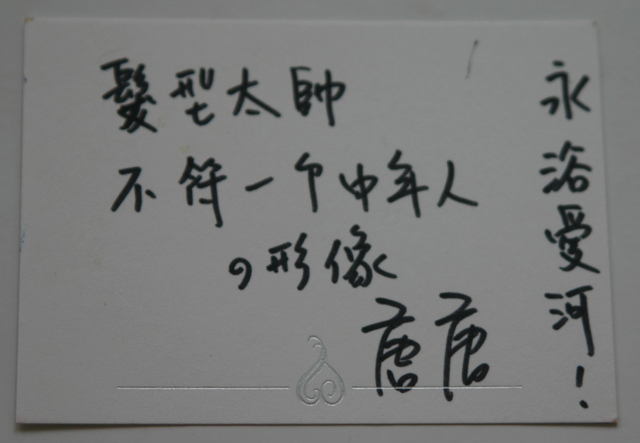 髮型太帥
不符一个中年人
の形像
唐唐
永浴愛河！